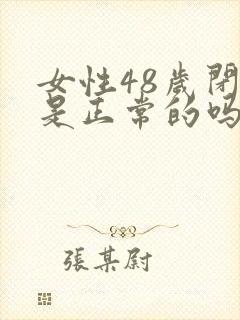 女性48歲閉
是正常的吗
張某尉